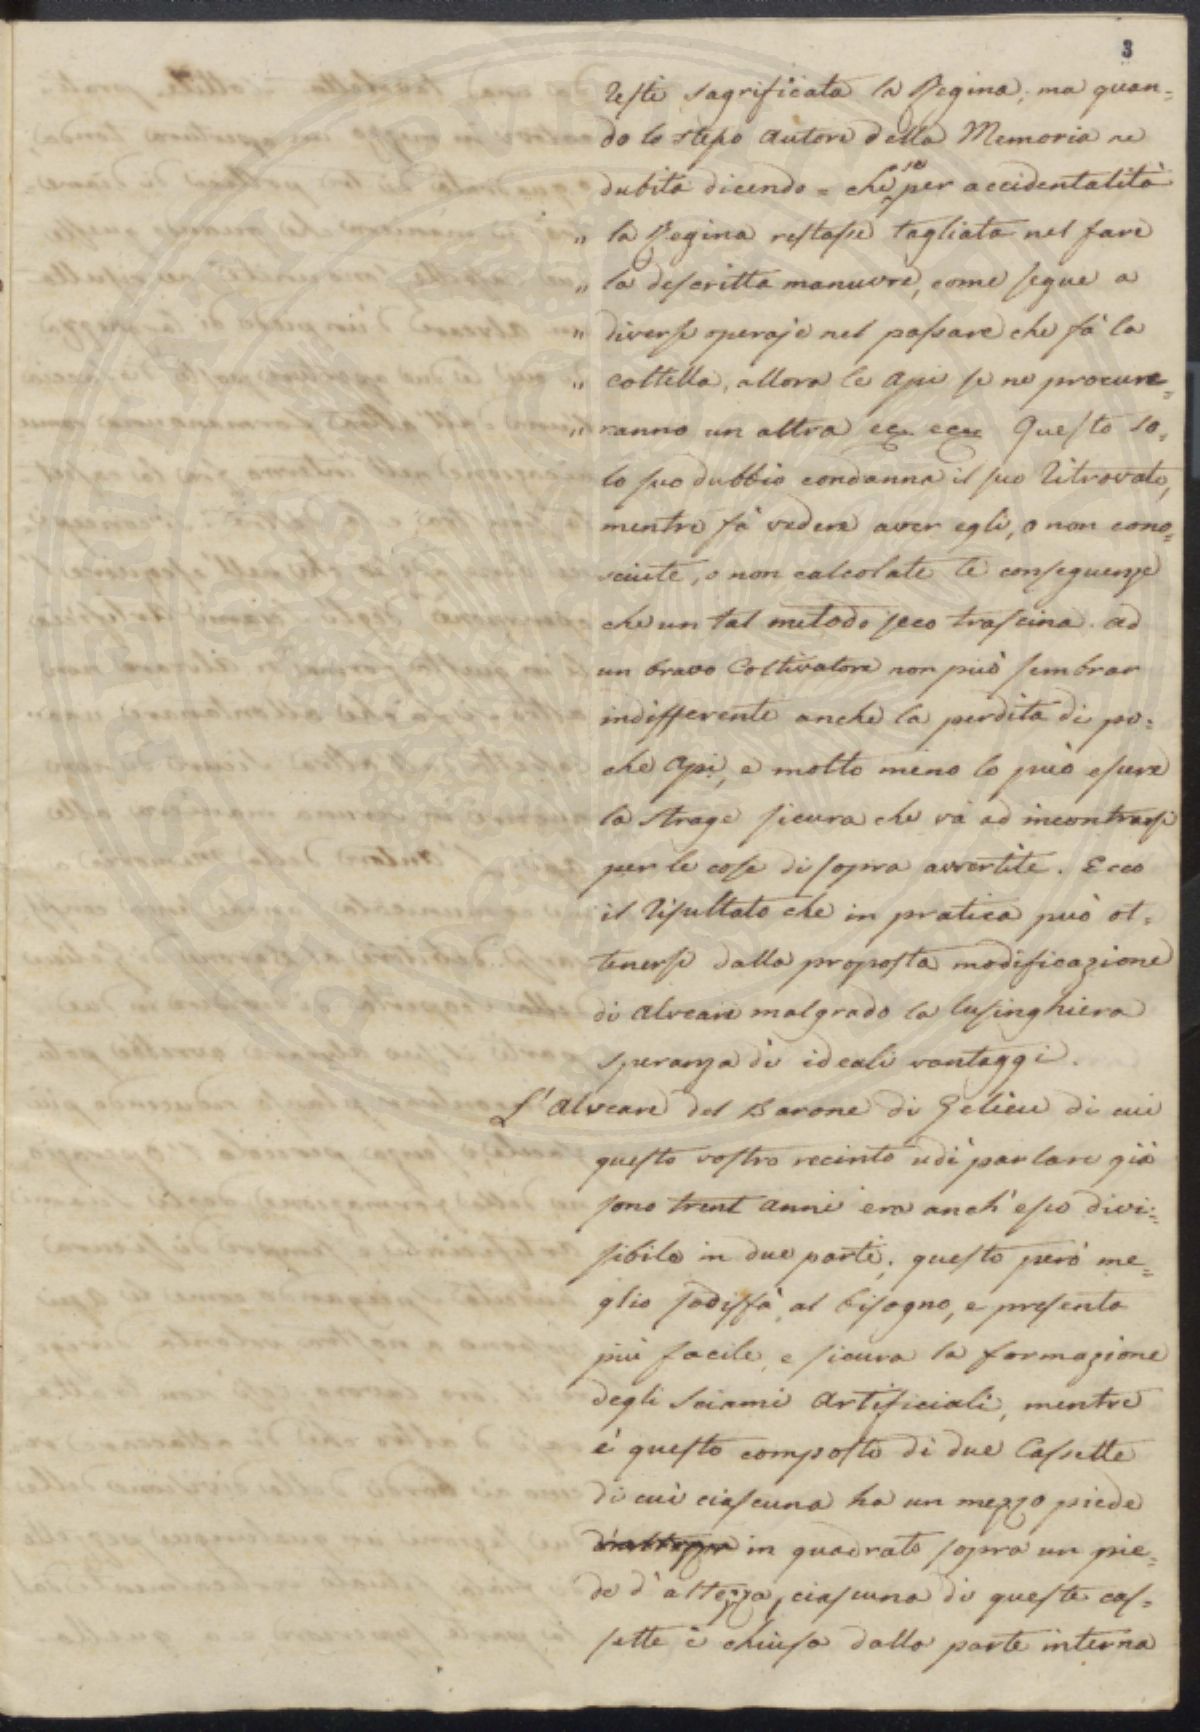 3
resti sagrificata la Regina; ma quan=
do lo stesso Autore della Memoria ne
dubita dicendo = che se per accidentalità
" la Regina restasse tagliata nel fare
" la descritta manuvre, come segue a
" diverse operaje nel passare che fà la
" coltella, allora le Api se ne procure=
" ranno un altra ec ecc Questo so=
lo suo dubbio condanna il suo ritrovato,
mentre fà vedere aver egli, o non cono=
sciute, o non calcolate le conseguenze
che un tal metodo seco trascina. Ad
un bravo Coltivatore non può sembrar
indifferente anche la perdita di po=
che Api, e molto meno lo può essere
la strage sicura che và ad incontrarsi
per le cose di sopra avvertite. Ecco
il risultato che in pratica può ot=
tenersi dalla proposta modificazione
di Alveari malgrado la lusinghiera
speranza di ideali vantaggi.
L'Alveare del Barone di Gelieu di cui
questo vostro recinto udì parlare già
sono trent'anni era anch'esso divi=
sibile in due parti; questo però me=
glio sodisfà al bisogno, e presenta
più facile, e sicura la formazione
degli sciami Artificiali, mentre
è questo composto di due Cassette
di cui ciascuna ha un mezzo piede
d'altezza in quadrato sopra un pie=
de d'altezza, ciascuna di queste cas=
sette è chiusa dalla parte interna